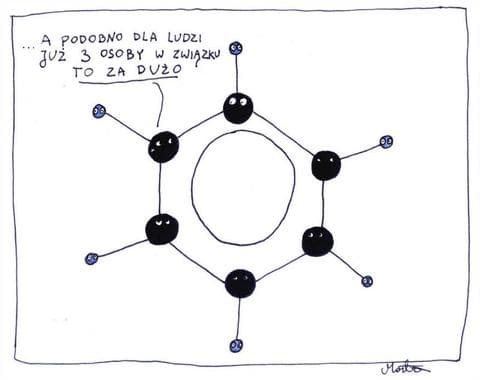 ...A PODOBNO DLA LUDZI
JUŻ 3 OSOBY W ZWIĄZKU
TO ZA DUŻO